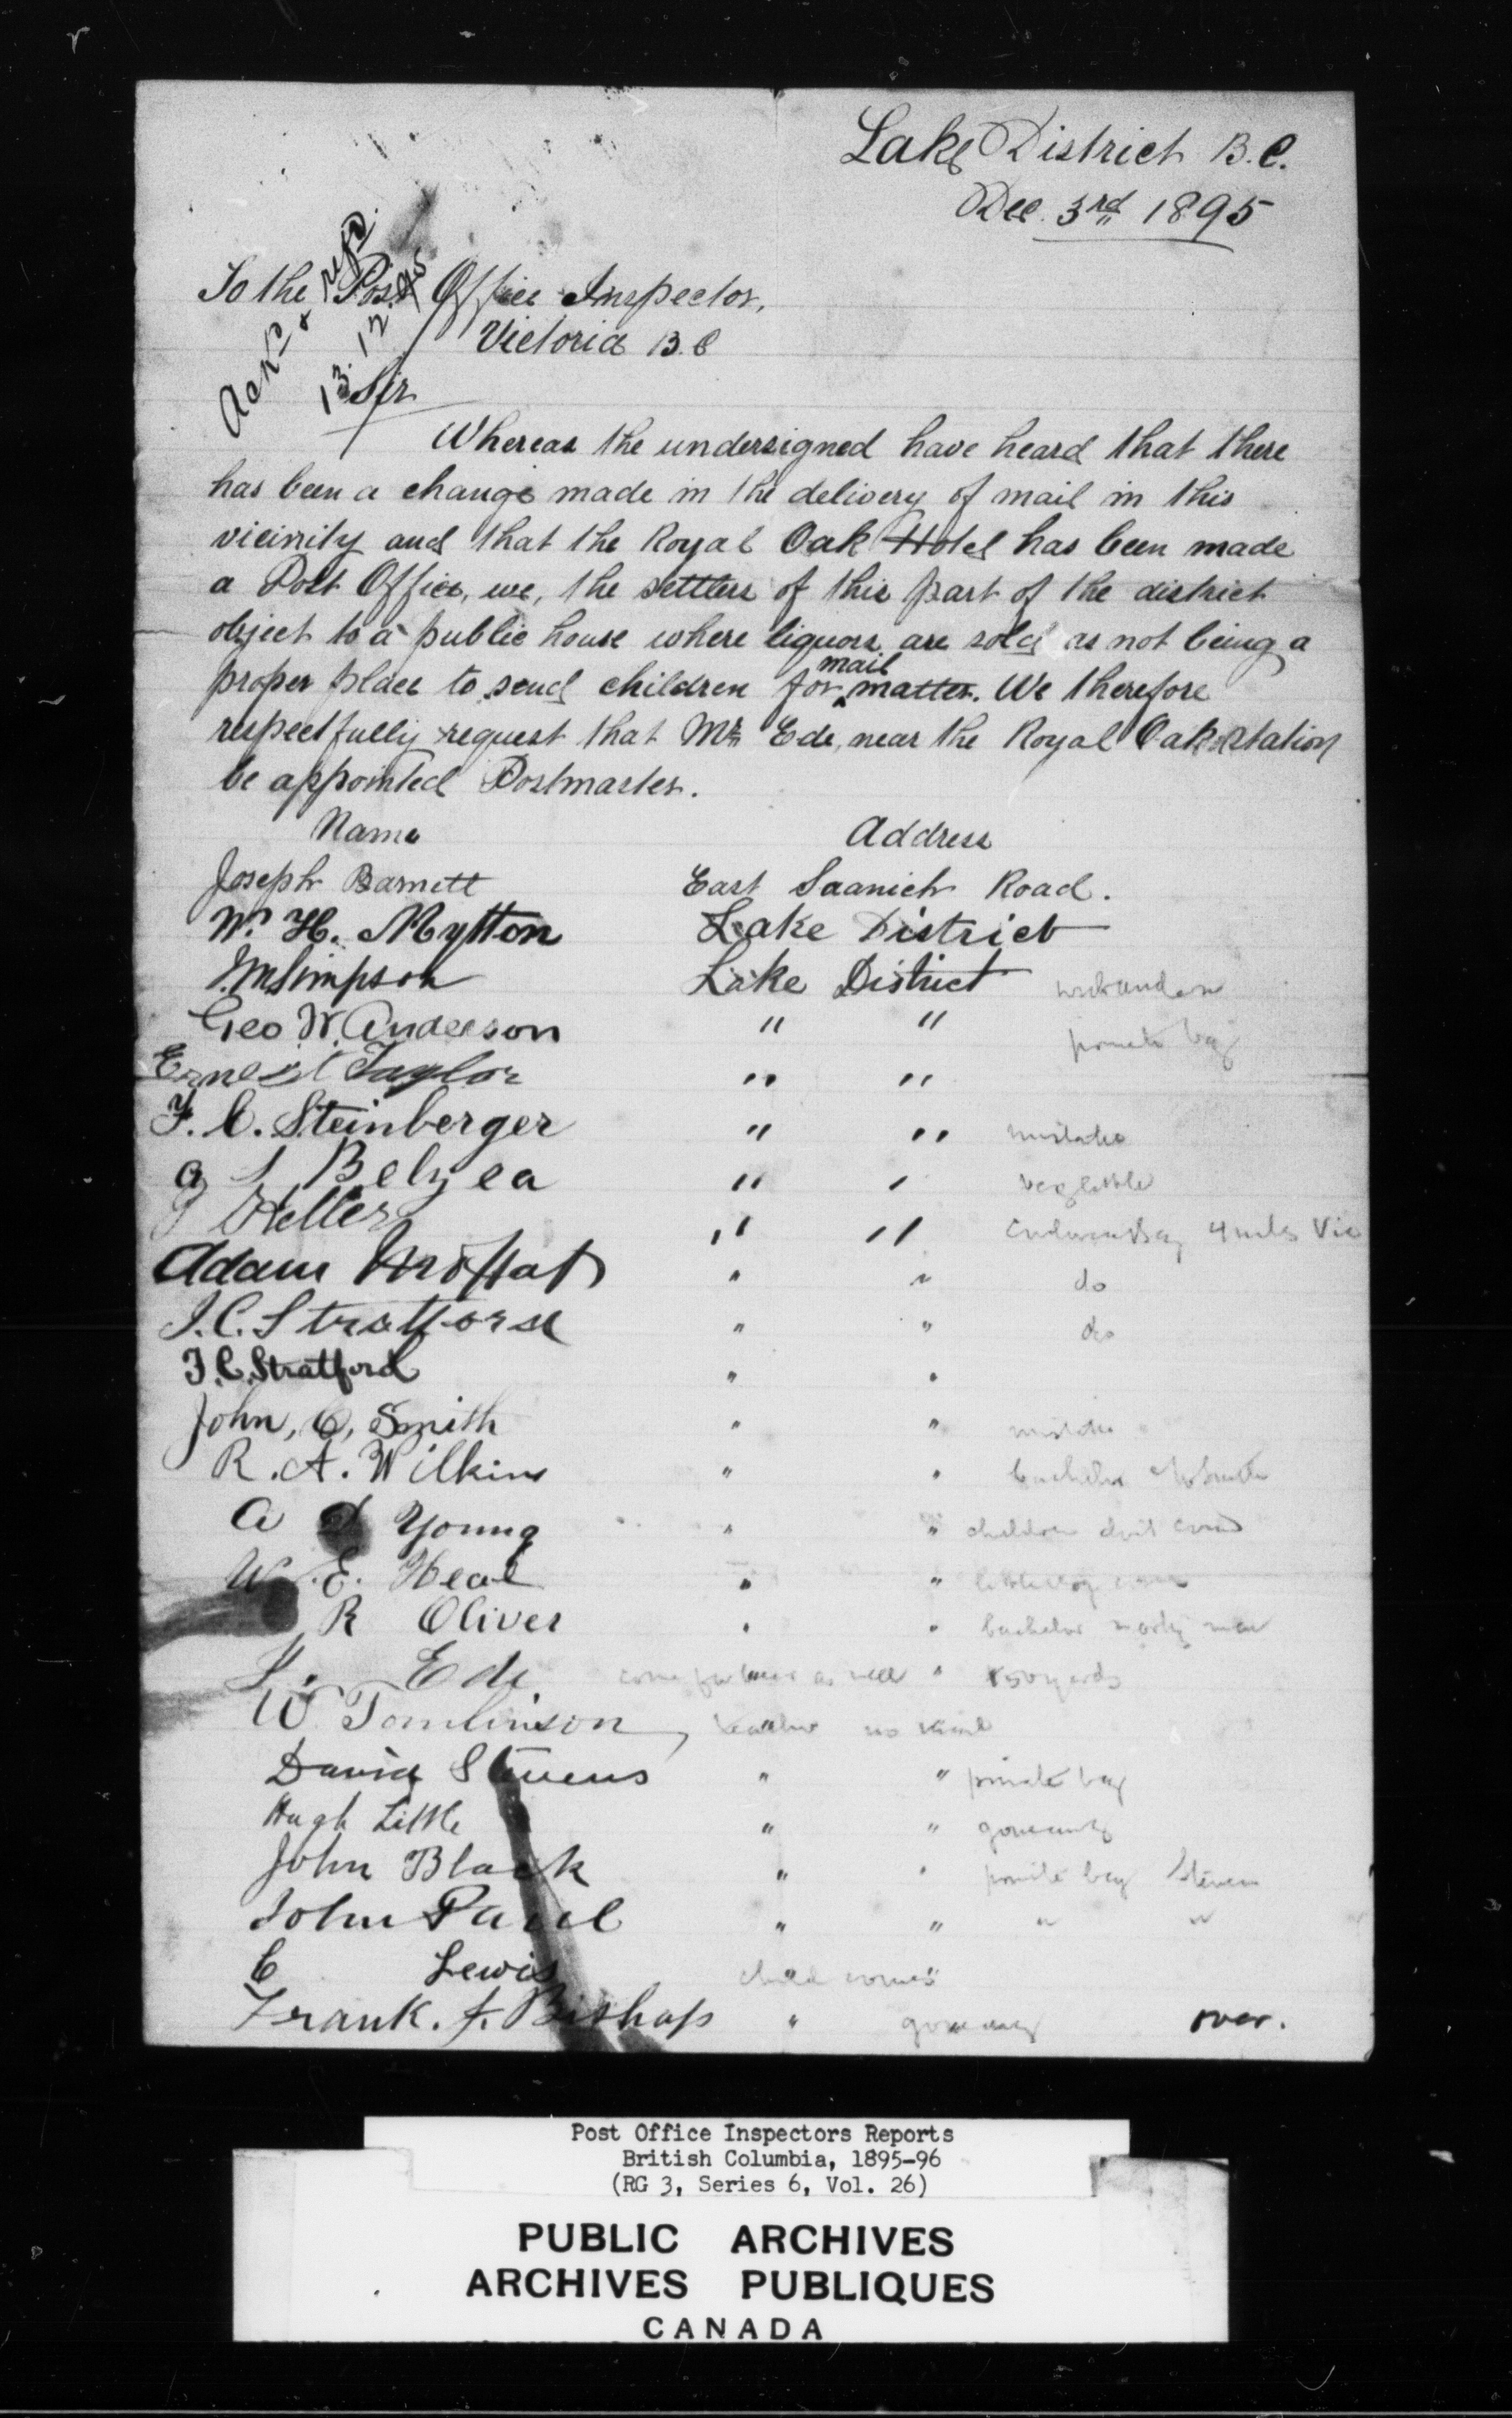 Lake District B.C.
Dec. 3rd 1895
Ackd & repd
13.12.95
To the Post Office Inspector,
Victoria B.C
Sir
Whereas the undersigned have heard that there
has been a change made in the delivery of mail in this
vicinity and that the Royal Oak Hotel has been made
a Post Office, we, the settlers of this part of the district
object to a public house where liquors are sold as not being a
proper place to send children for mail matter. We therefore
respectfully request that Mr Ede, near the Royal Oak Station
be appointed Postmaster.
Name Address
Joseph Barnett East Saanich Road.
W. H. Mytton Lake District
J. M Simpson Lake District
Geo W. Anderson " " private bag
Ernest Taylor " "
F. C. Steinberger " " mistake
A Belyea " " vegetable
Heller " " 4 miles Vic
Adam Moffat " " do
J. C. Stratford " " do
J. C. Stratford " "
John, C, Smith " " mistake
R. A. Wilkins " " bachelor
A Young " " children
W. E. Heal " "
R Oliver " " bachelor
Ede come as well " 850 yards
W Tomlinson,
David Stevens " " private bag
Hugh Little " "
John Black " " private bag Stevens
John Paul " " " "
C Lewis child comes
Frank. J. Bishop "
over.
Post Office Inspectors Reports
British Columbia, 1895-96
(RG 3, Series 6, Vol. 26)
PUBLIC ARCHIVES
ARCHIVES PUBLIQUES
CANADA